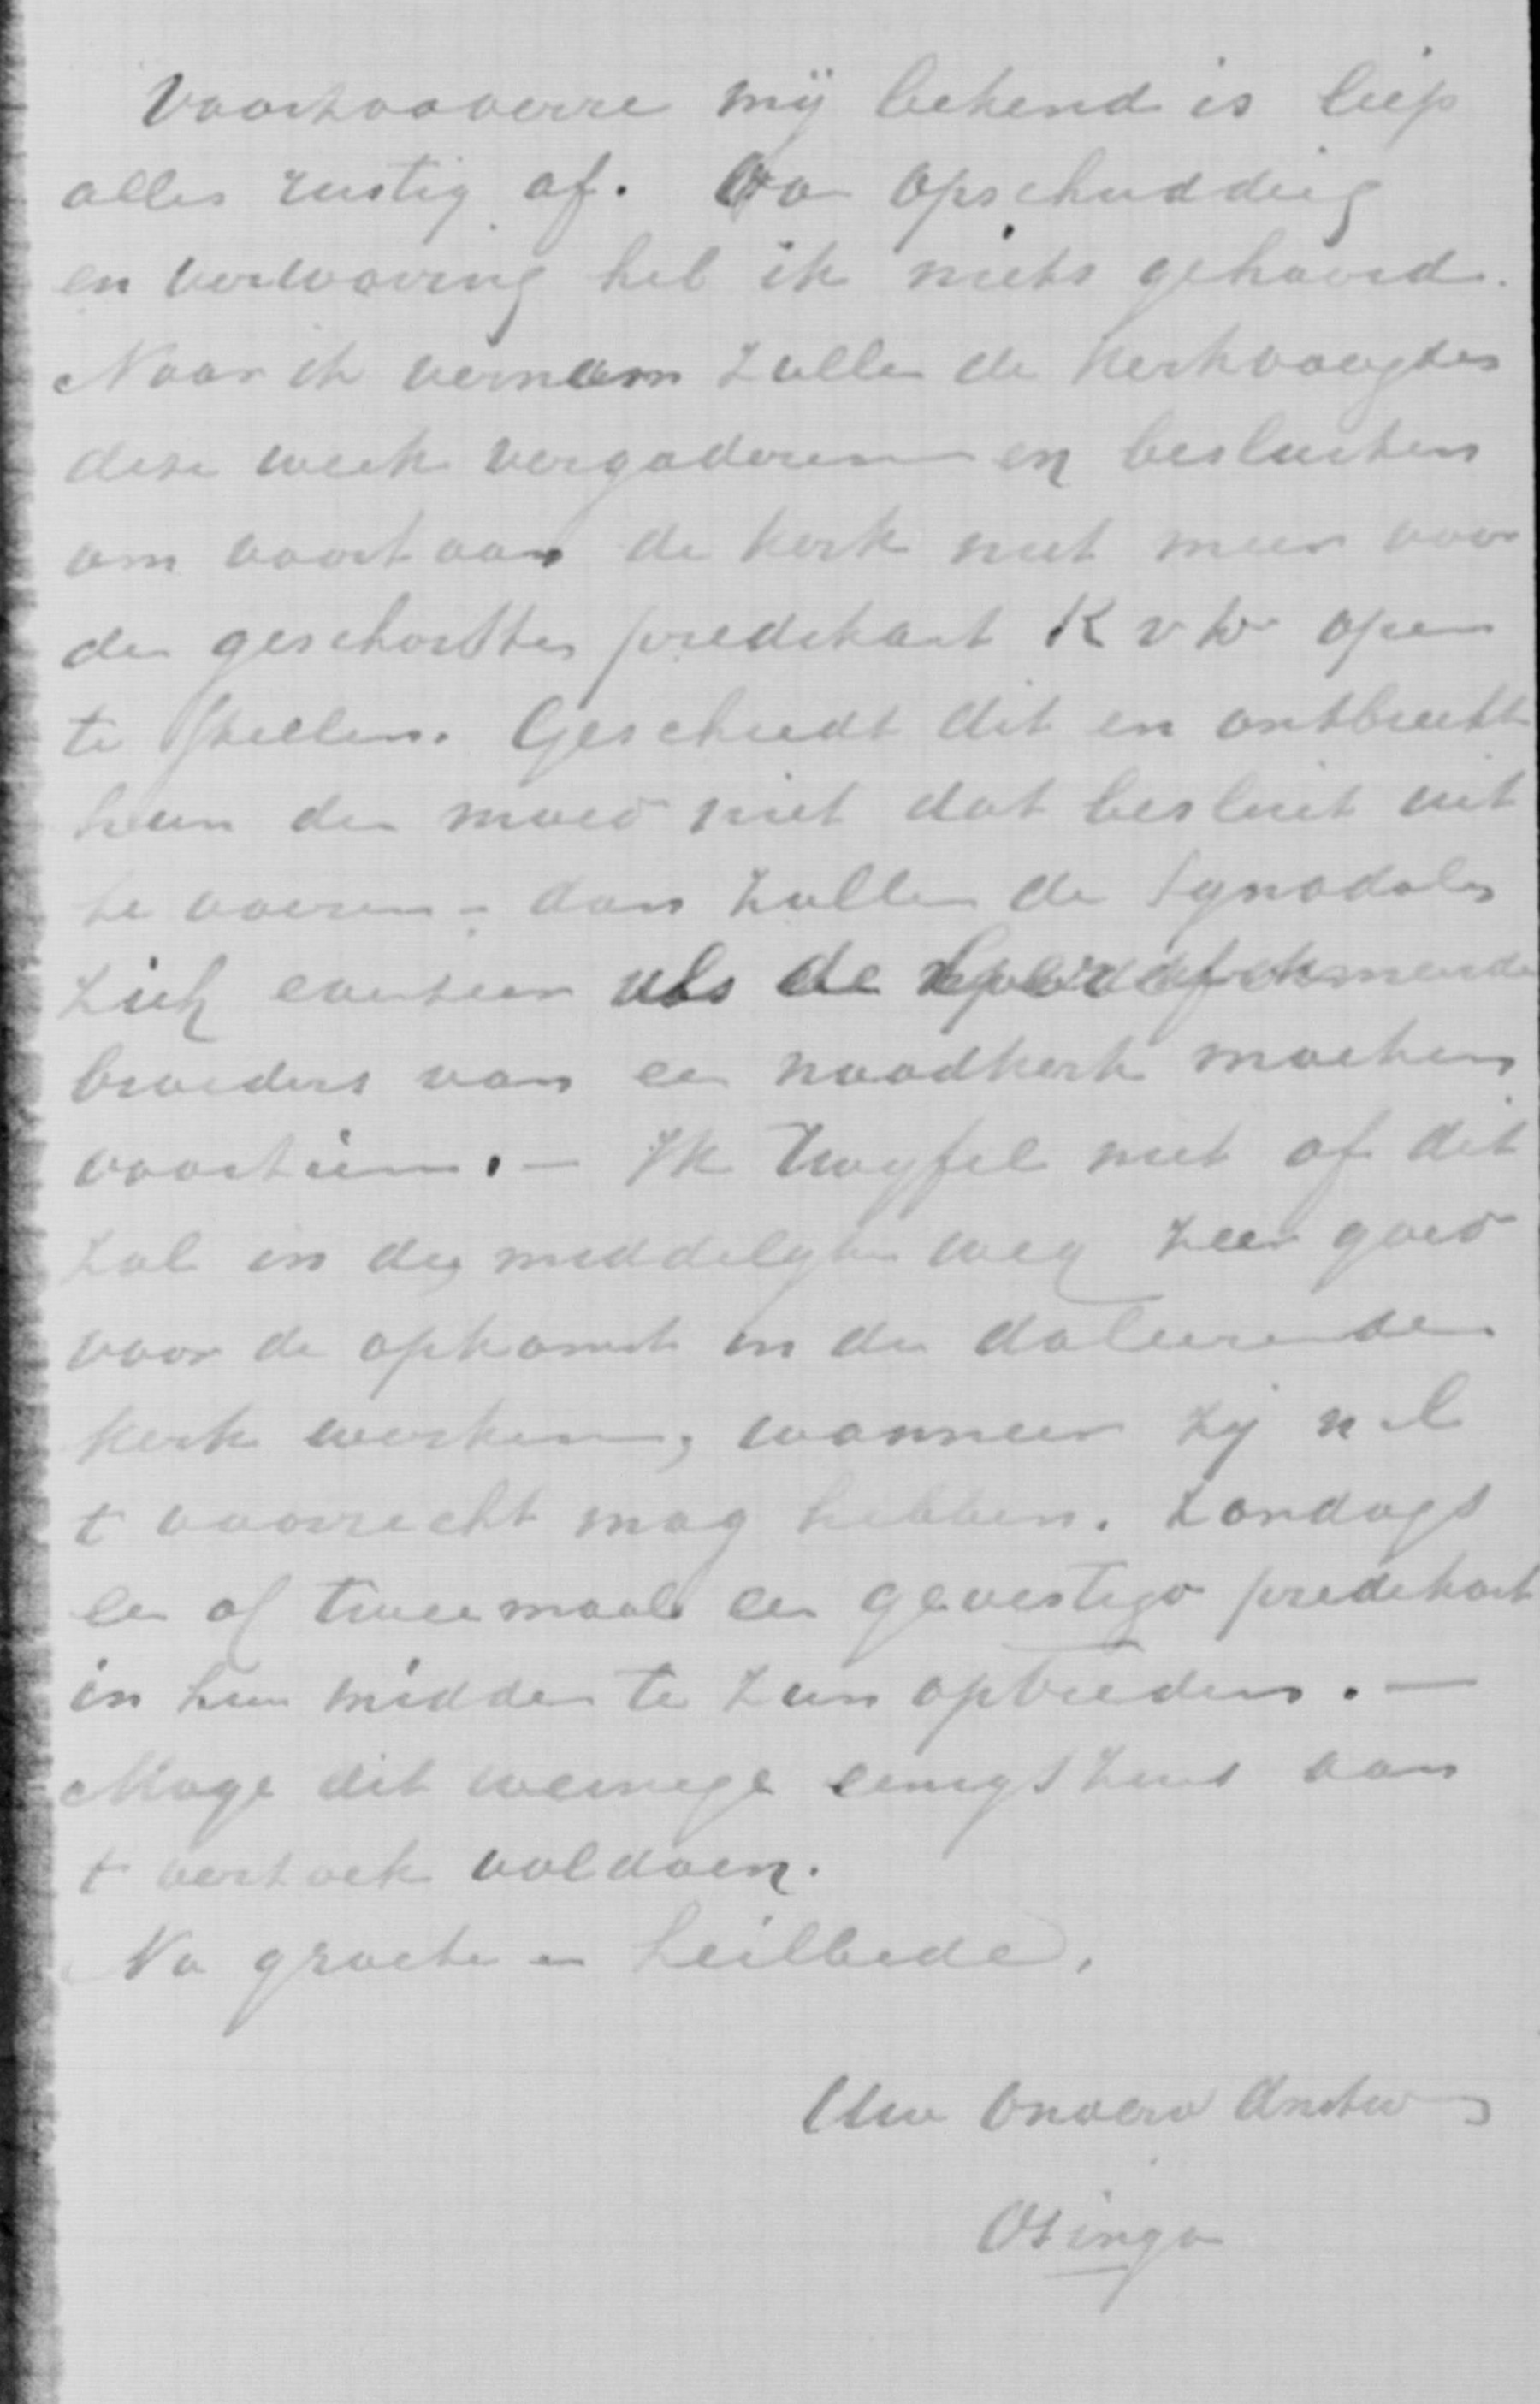 Voorzooverre mij bekend is liep
alles rustig af. Van opschudding
en verwarring heb ik niets gehoord.
Naar ik vernam zullen de Kerkvoogden
deze week vergaderen en besluiten
om voortaan de kerk niet meer voor
den geschorsten predikant K v W open
te stellen. Geschiedt dit en ontbreekt
hun den moed niet dat besluit uit
te voeren - dan zullen de Synodalen
zich evenzeer als de
broeders van een noodkerk moeten
voorzien. — Ik twyfel niet of dit
zal in den middelyken weg zeer goed
voor de opkomst in de doleerende
kerk werken, wanneer zij nl
t voorrecht mag hebben. Zondags
een of tweemaal een gevestigd predikant
in hun midden te zien optreden. —
Moge dit weinige eenigszins aan
t verzoek voldoen.
Na groete en heilbede,
Uw
Osinga